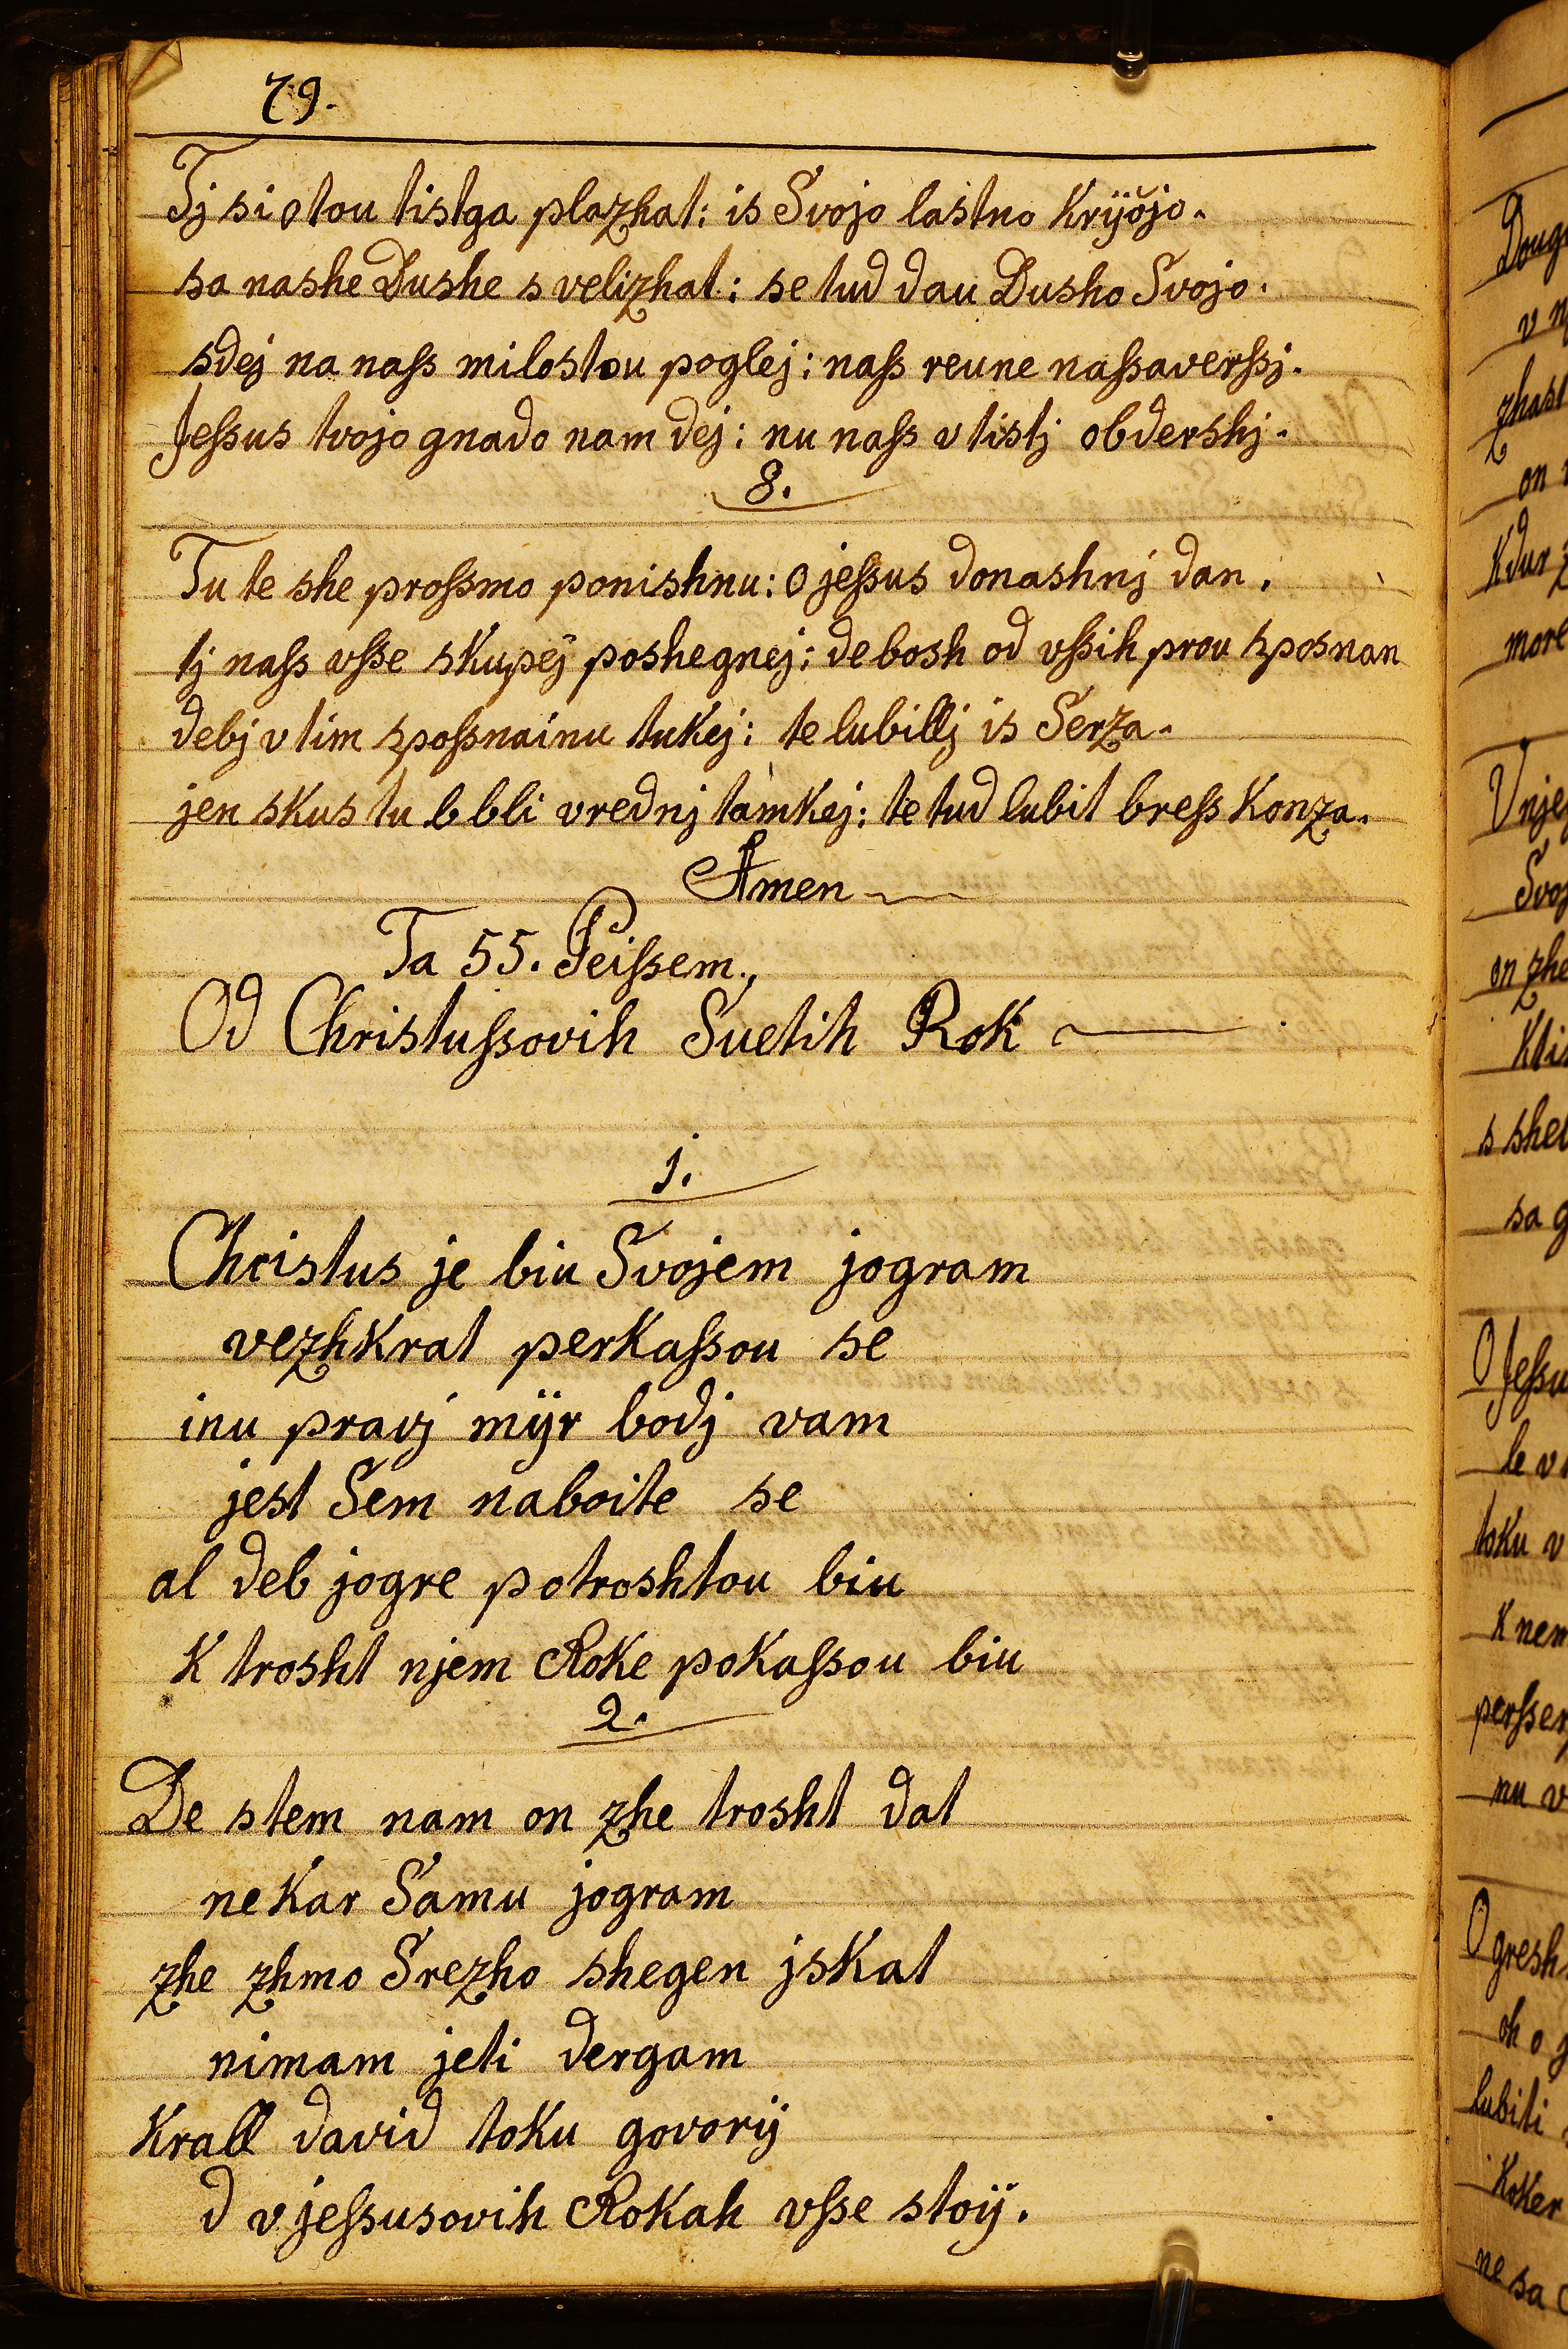 79.
Tj si otou tistga plazhat: is Svojo lastno Krÿojo.
sa nashe Dushe s velizhat: se tud dau Dusho Svojo.
sdej na naſs milostou poglej: naſs reune naſsaverſsj.
Jeſsus tvojo gnado nam dej: nu naſs v tistj obdershj.
8.
Tu te she proſsmo ponishnu: O jeſsus donashnj dan.
tj naſs vſse skupej poshegnej: de bosh od vſsih prou sposnan
debj v tim spoſsnainu tukej: te lubillj is Serza.
jen skus tu b bli vrednj tamkej: te tud lubit breſs Konza.
Amen
Ta 55. Peiſsem.,
Od Christuſsovih Suetih Rok
1.
Christus je biu Svojem jogram
vezhkrat perkaſsou se
inu pravj mÿr bodj vam
jest Sem naboite se
al deb jogre potroshtou biu
K trosht njem Roke pokaſsou biu
2.
De stem nam on zhe trosht dat
nekar Samu jogram
zhe zhmo Srezho shegen jskat
nimam jeti dergam
Krall david toku govorÿ
d v jeſsusovih Rokah vſse stoÿ.